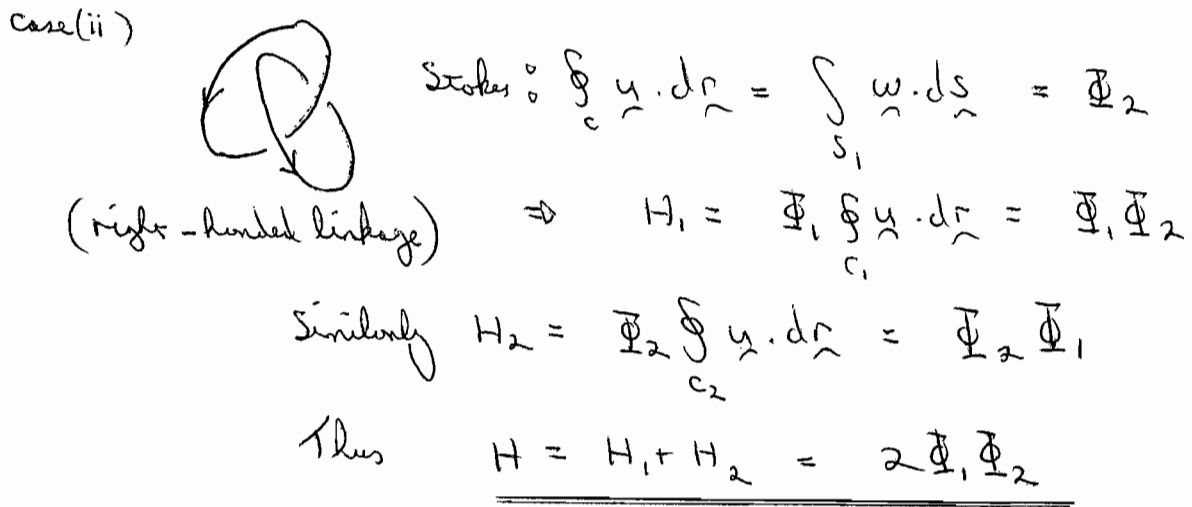 case (ii)
Stokes : ∮_c ṵ . dr̰ = ∫_{S_1} ω̰ . ds̰ = Φ_2
(right-handed linkage) ⇒ H_1 = Φ_1 ∮_{c_1} ṵ . dr̰ = Φ_1 Φ_2
Similarly H_2 = Φ_2 ∮_{c_2} ṵ . dr̰ = Φ_2 Φ_1
Thus H = H_1 + H_2 = 2Φ_1Φ_2